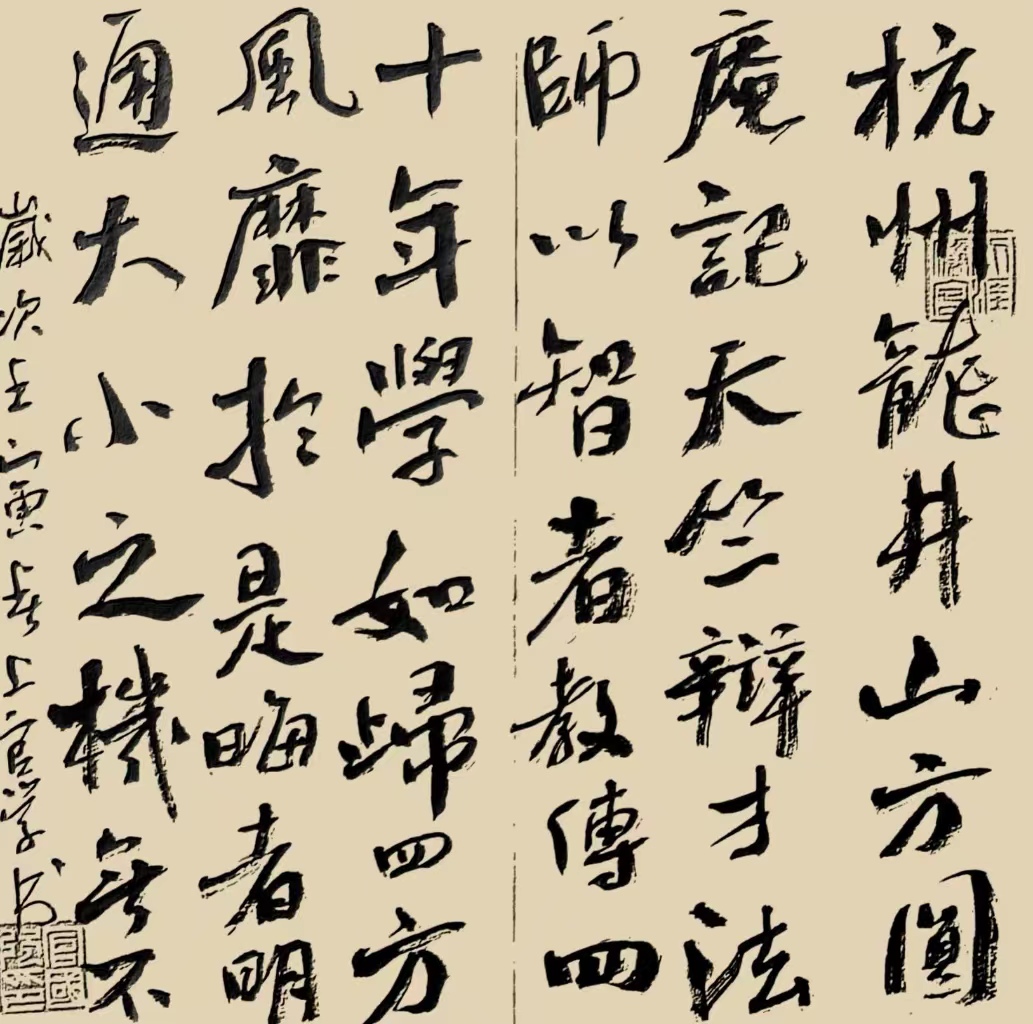 杭州龍井山方圓
庵記天竺辯才法
師以智者教傳四
十年學如歸四方
風靡於是晦者明
通大小之機無不
歲次寅春上官学书